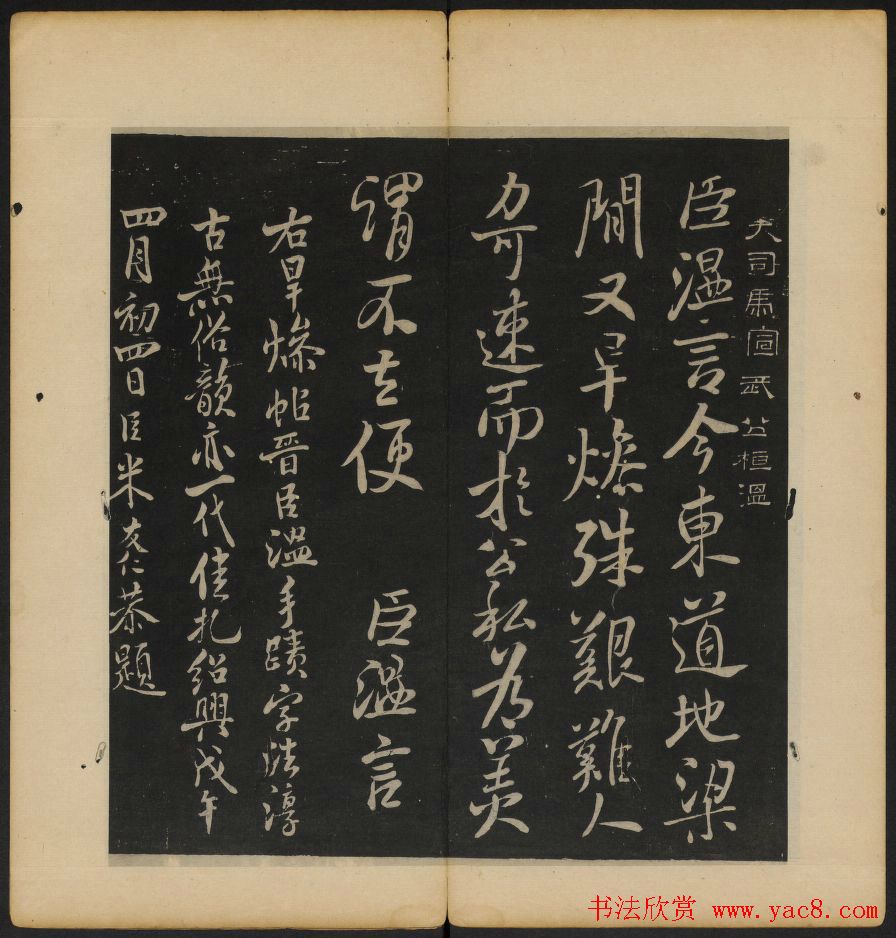 大司馬宣武公桓溫
臣溫言今東道地梁
間又旱燥殊艱難人
力可速而於公私為美
謂不去便 臣溫言
右旱燥帖晉臣溫手蹟字法淳
古無俗韻亦一代佳札紹興戊午
四月初四日臣米友仁恭題
书法欣赏 www.yac8.com